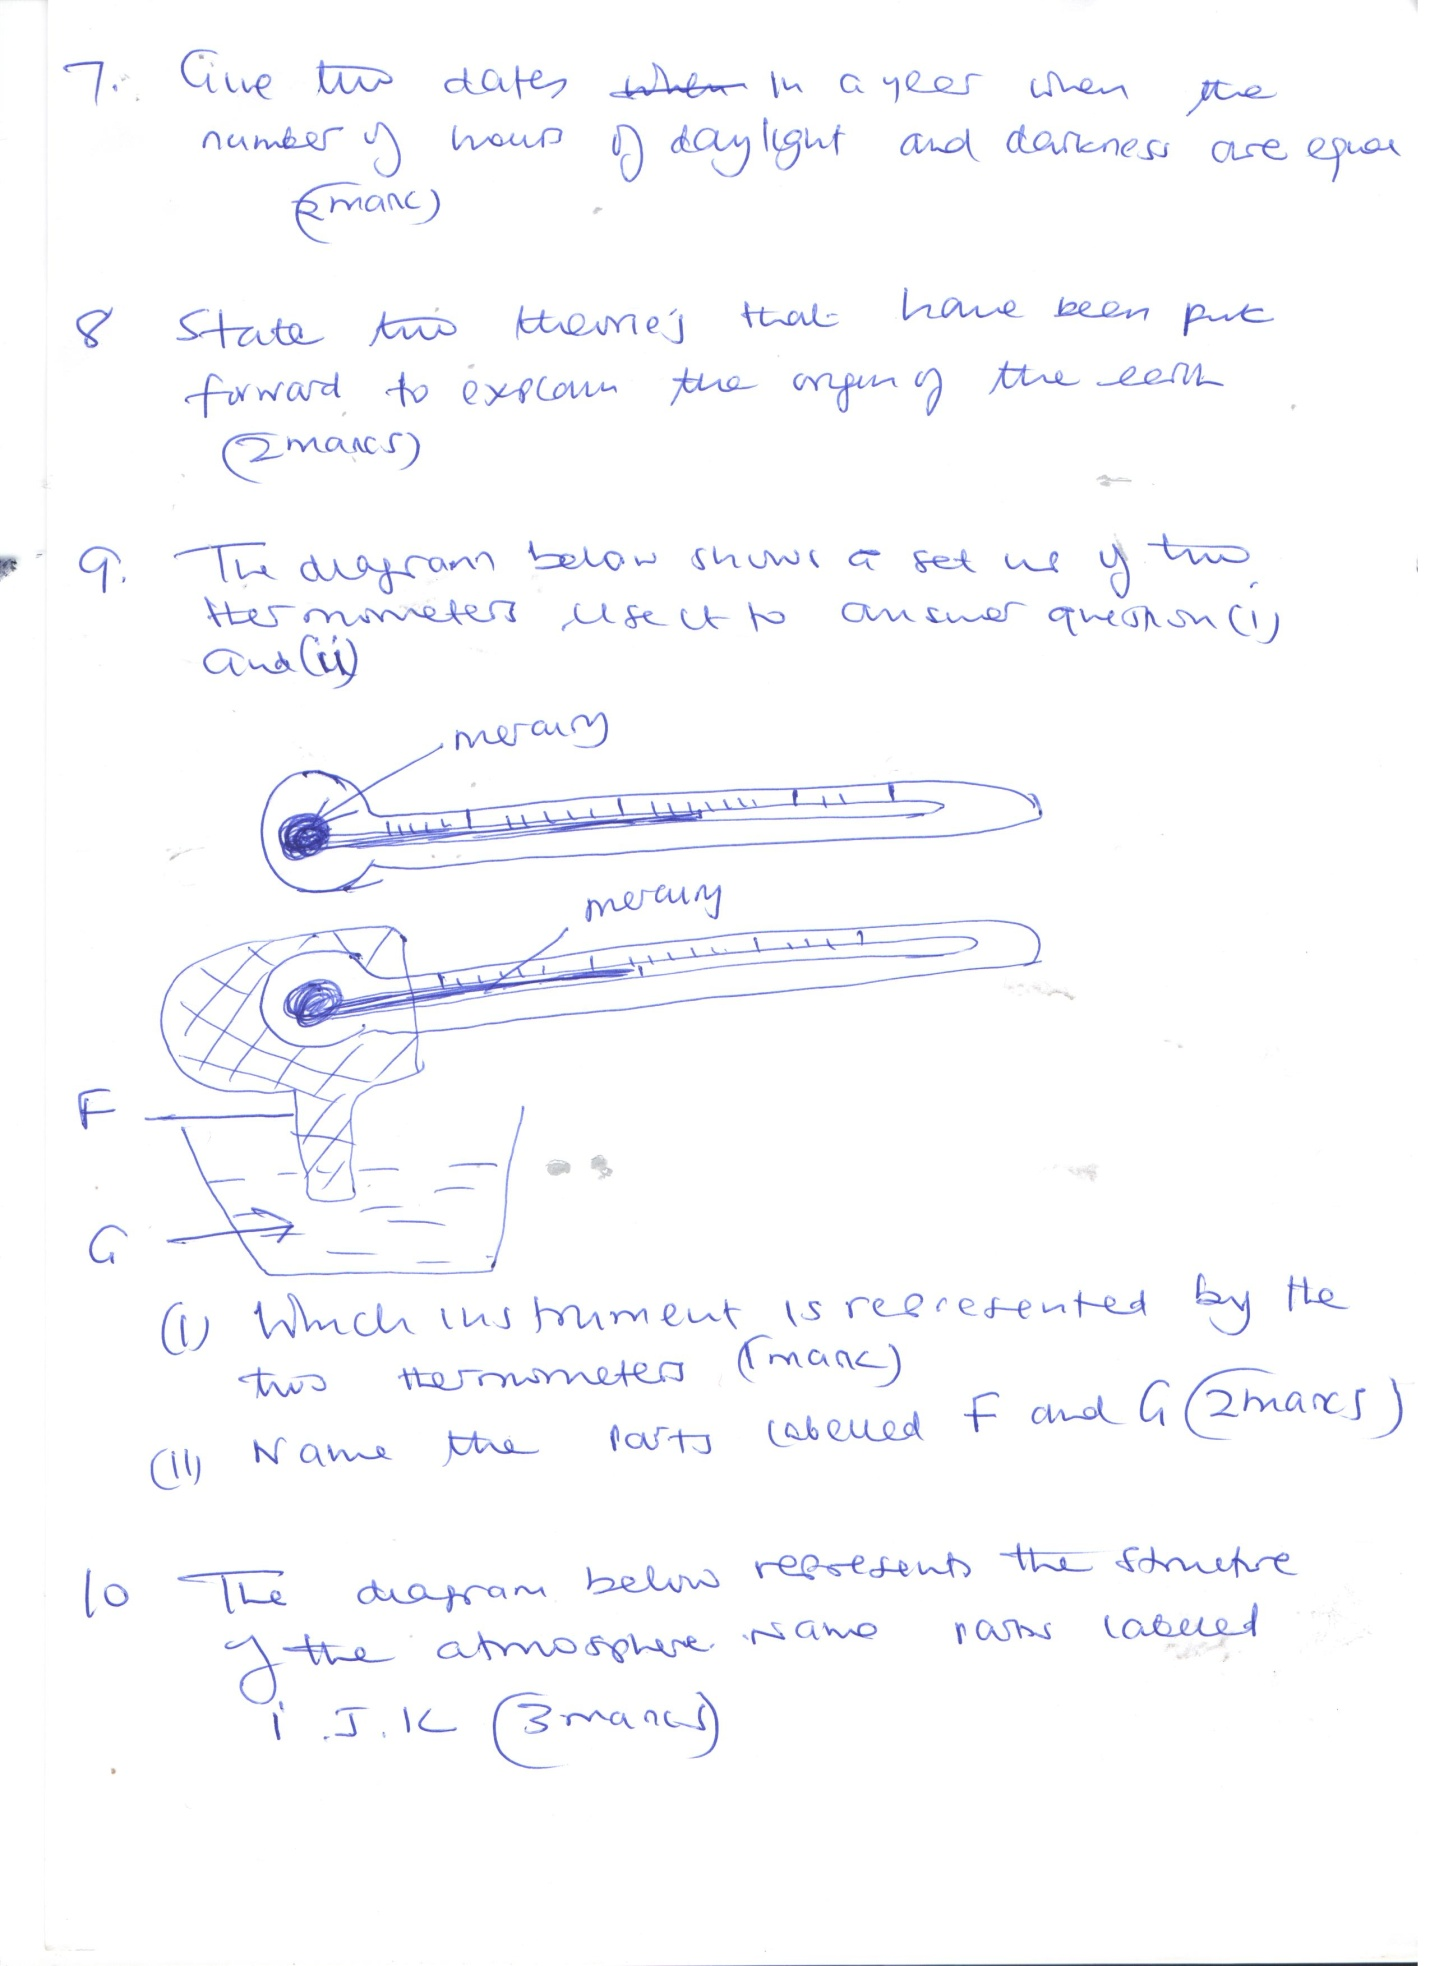 7. Give two dates when in a year when the
number of hours of daylight and darkness are equal
(2 mark)
8 State two theories that have been put
forward to explain the origin of the earth
(2 marks)
9. The diagram below shows a set up of two
thermometers use it to answer question (i)
and (ii)
mercury
mercury
F
G
(i) Which instrument is represented by the
two thermometers (1 mark)
(ii) Name the parts labelled F and G (2 marks)
10 The diagram below represents the structure
of the atmosphere. Name parts labelled
i . J . K (3 marks)